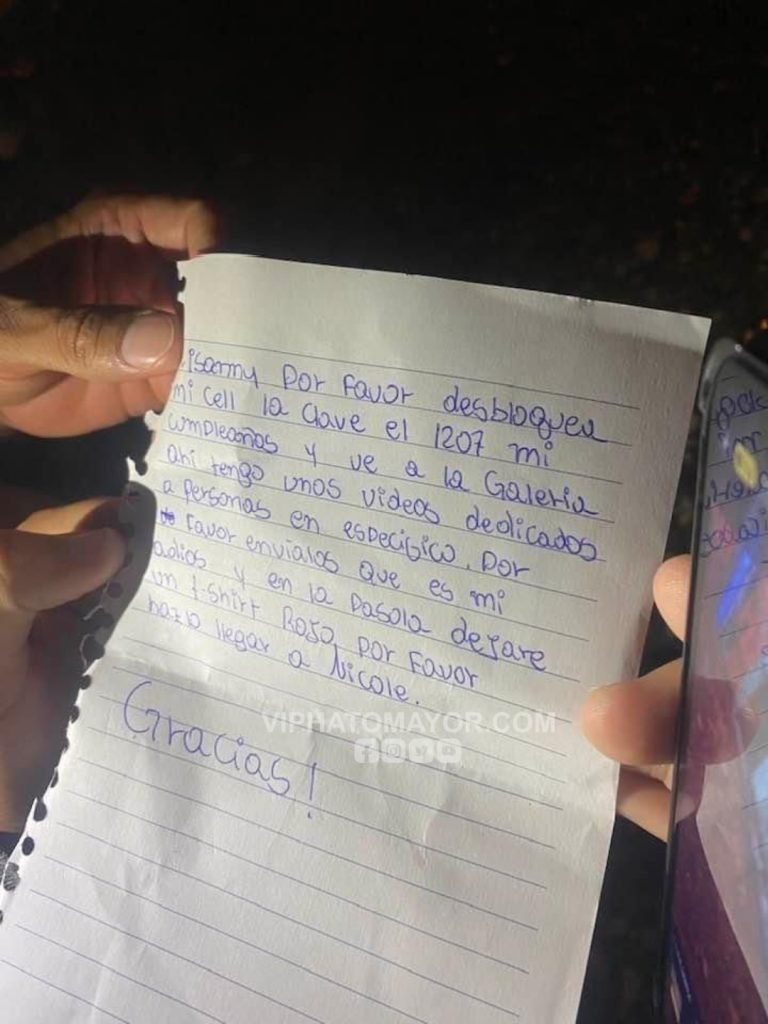 isarmy por favor desbloquea
mi cell la clave el 1207 mi
cumpleaños y ve a la Galeria
ahi tengo unos videos dedicados
a personas en especisico. Por
favor envialos que es mi
adios y en la pasola dejare
un t-shirt Rojo por favor
hazlo llegar a Nicole.
Gracias!
VIPHATOMAYOR.COM